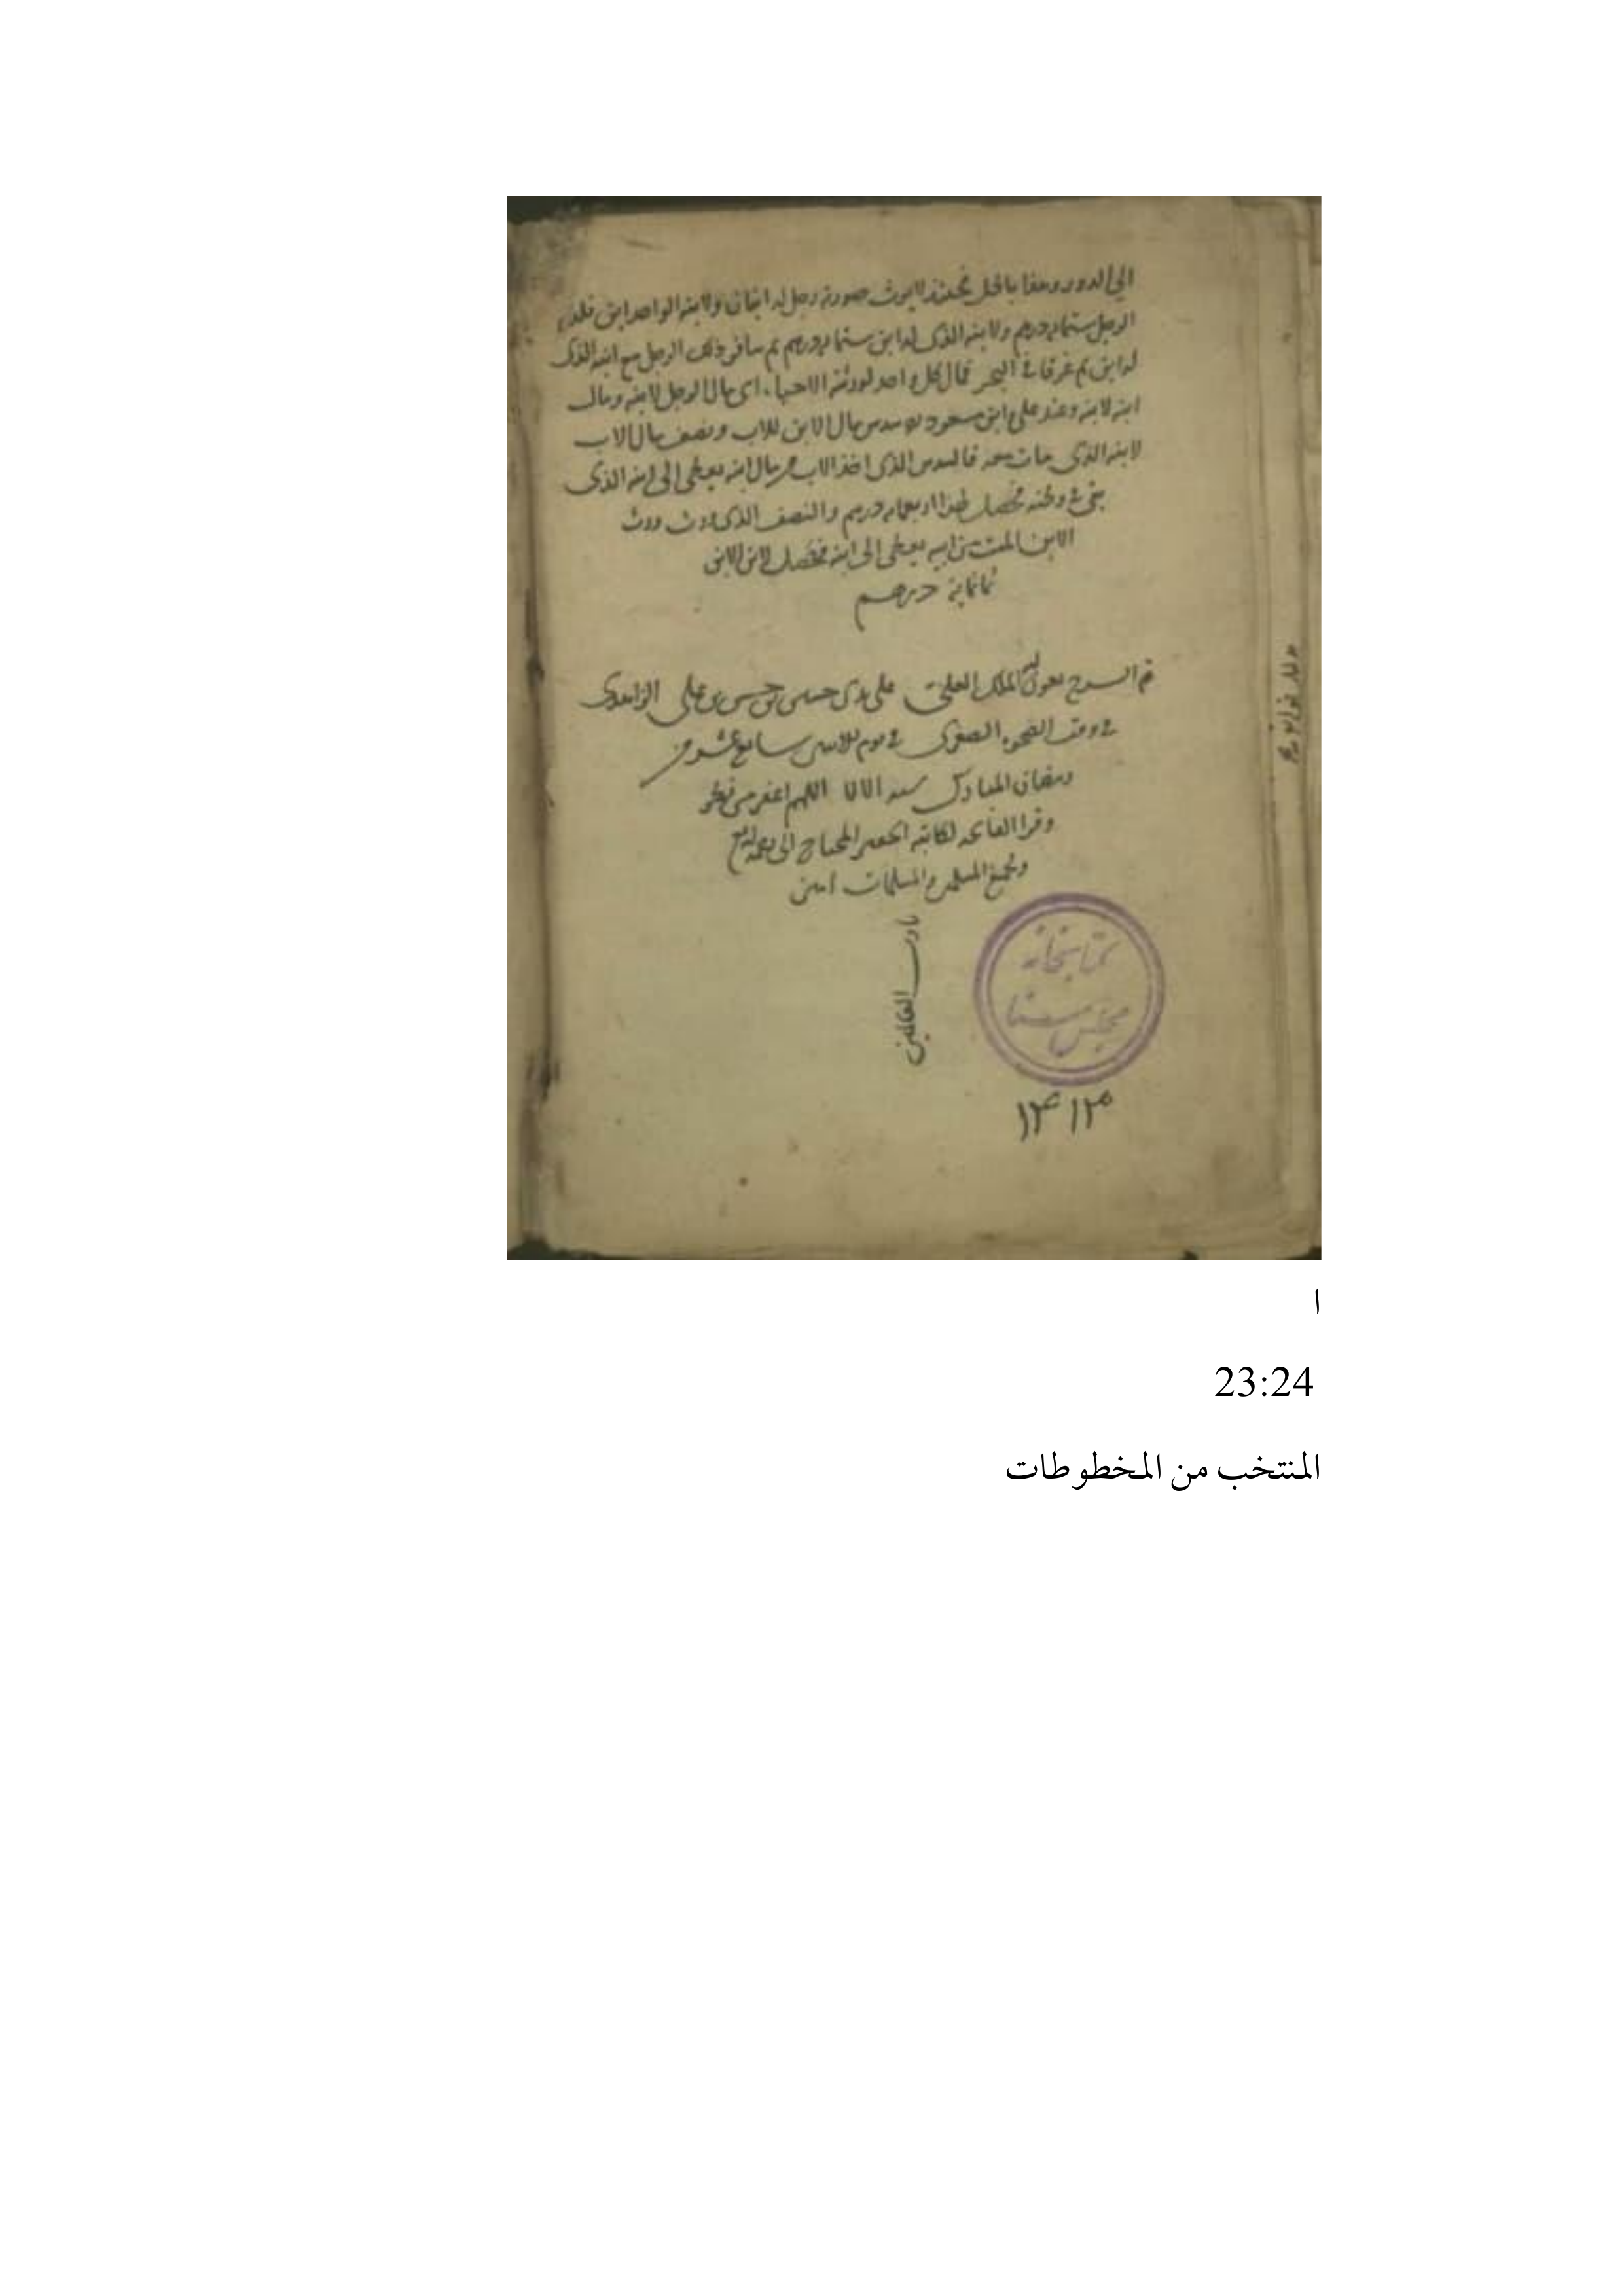 الى الدور وهذا باطل فحينئذ لا يورث صورته رجل له ابنان ولابنه الواحد ابن فلذلك
الرجل ستمايه درهم ولابنه الذى له ابن ستمايه درهم ثم سافر ذلك الرجل مع ابنه الذى
له ابن ثم غرقا فى البحر فمال كل واحد لورثته الاحياء اى مال الرجل لابنه ومال
ابنه لابنه وعند على وابن مسعود سدس مال الابن للاب ونصف مال الاب
لابنه الذى مات معه فالسدس الذى اخذ الاب من مال ابنه يعطى الى ابنه الذى
بقى فى وطنه فحصل لهذا اربعمايه درهم والنصف الذى ورث
الابن الميت من ابيه يعطى الى ابنه فحصل لابن الابن
ثمانماية درهم
تم الشرح بعون الله الملك العلى على يدى حسين بن حسن بن على الزاهدى
فى وقت الضحوة الصغرى فى يوم سابع عشر من
رمضان المبارك سنه اللهم اغفر من نظر
وقرا الفاتحه لكاتبه الحقير المحتاج الى
ولجميع المسلمين والمسلمات امين
يا رب العالمين
كتابخانه
مجلس سنا
۱۴۱۳
ا
23:24
المنتخب من المخطوطات